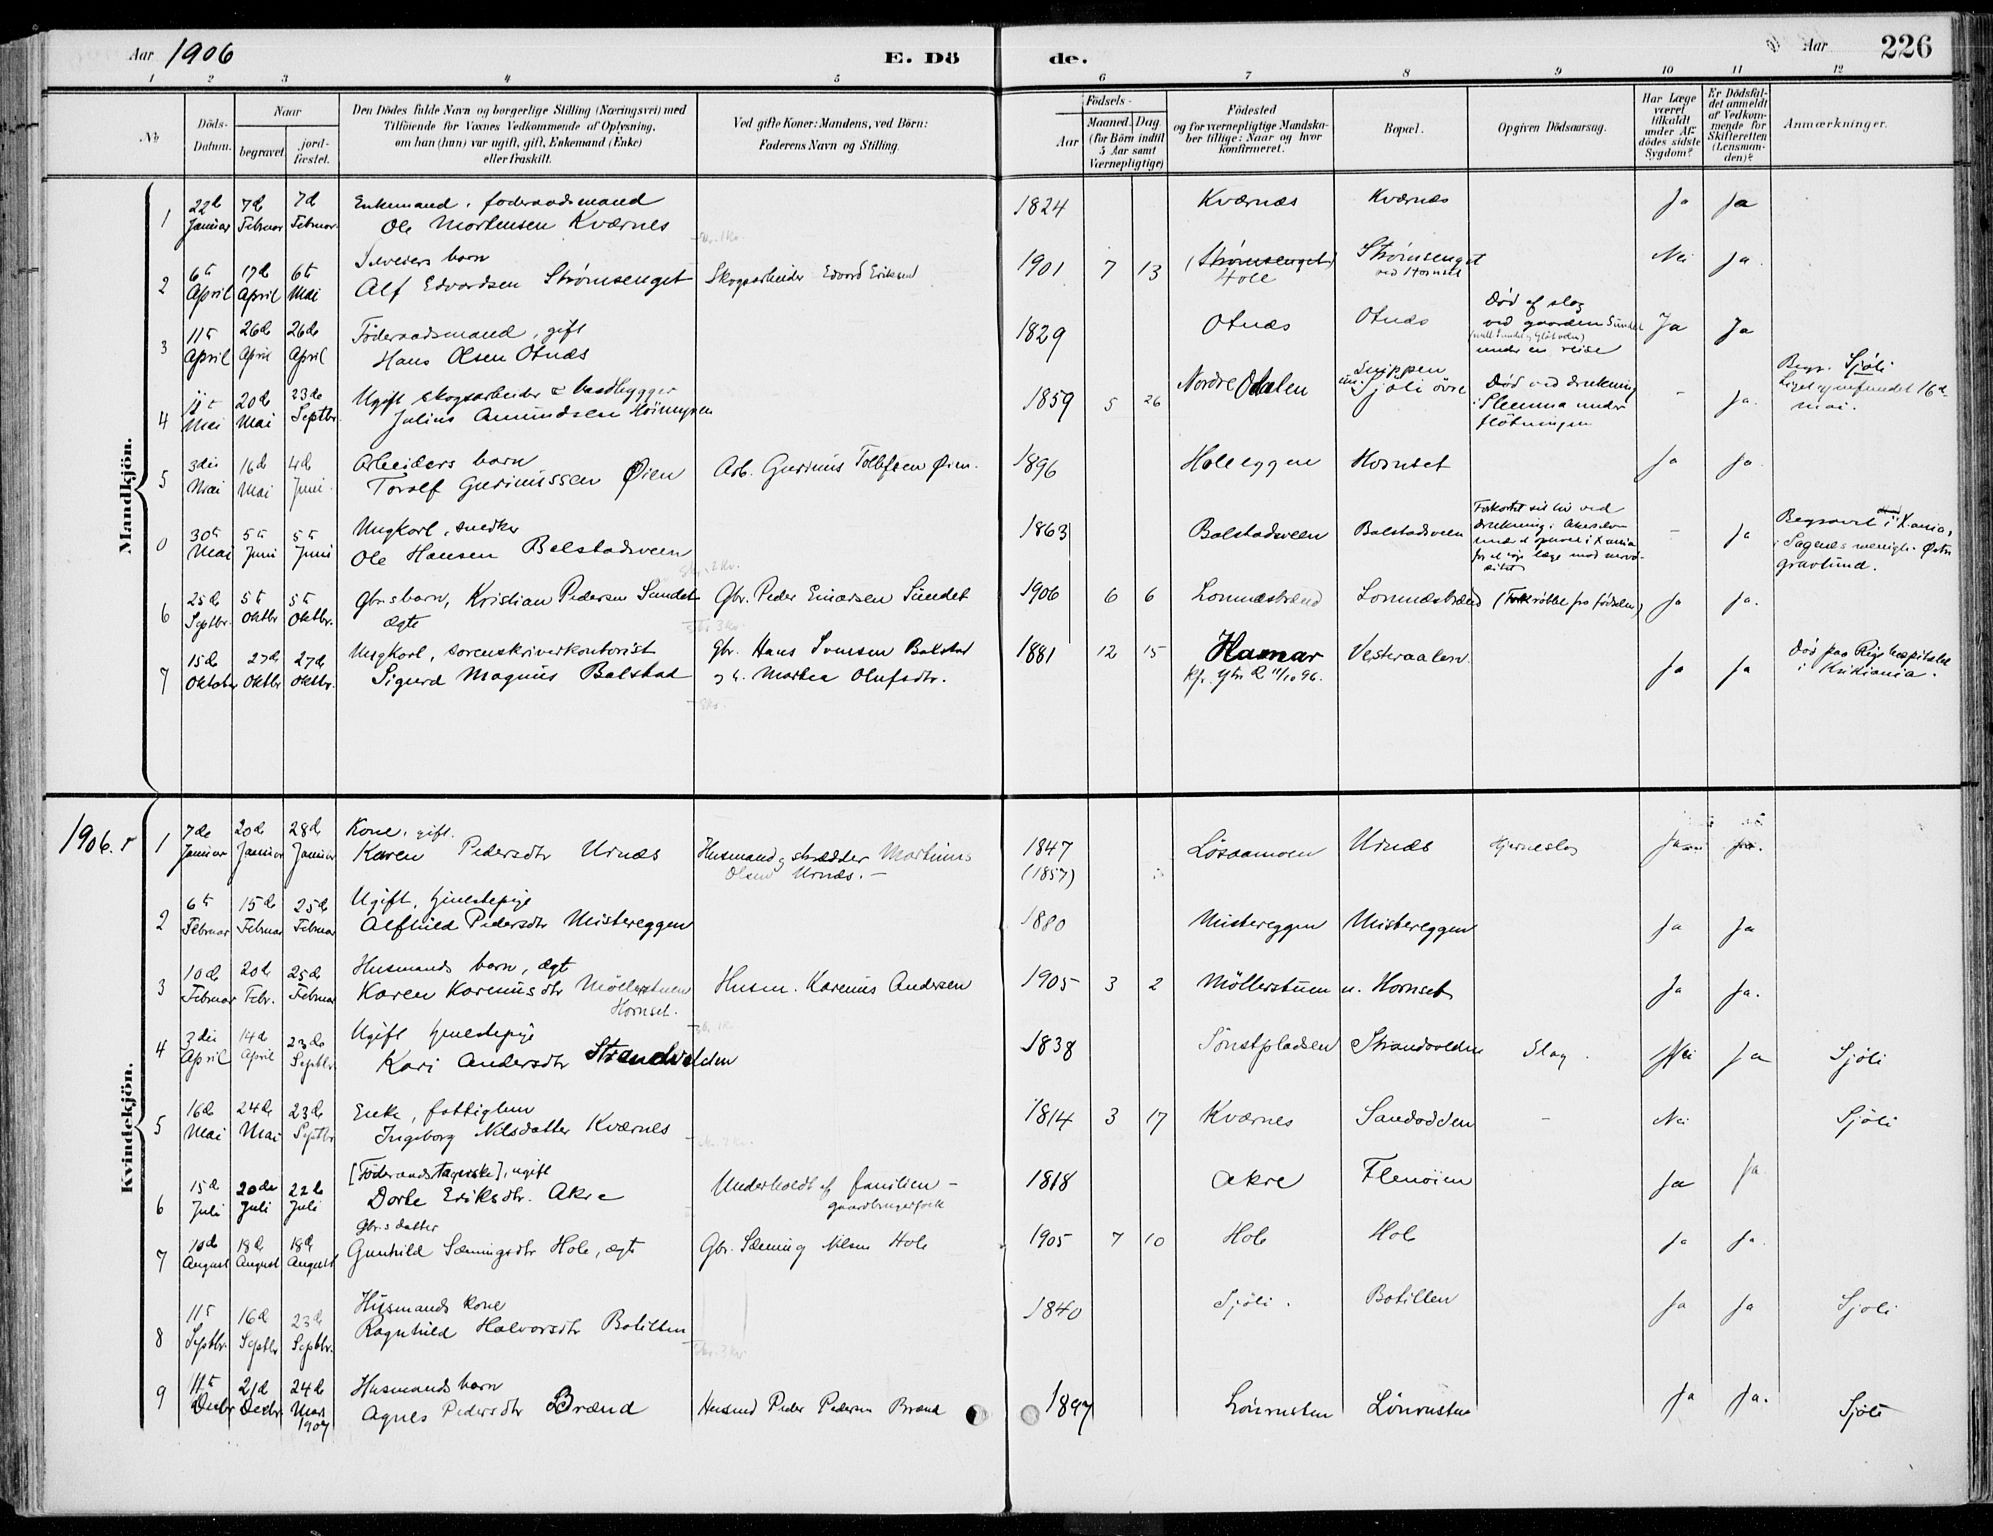 Aar 1906
E. Dö
de.
Aar
226
1 2 3 4 5 6 7 8 9 10 11 12
No
Döds-
Datum.
Naar
begravet.
jord-
fæstet.
Den Dödes fulde Navn og borgerlige Stilling (Næringsvei) med
Tilföiende for Voxnes Vedkommende af Oplysning,
om han (hun) var ugift, gift, Enkemand (Enke)
eller fraskilt.
Ved gifte Koner: Mandens, ved Börn:
Faderens Navn og Stilling.
Födsels-
Aar
Maaned.
Dag
(for Börn indtil
5 Aar samt
Værnepligtige)
Födested
og for værnepligtige Mandska-
ber tillige: Naar og hvor
konfirmeret.
Bopæl.
Opgiven Dödsaarsag.
Har Læge
været
tilkaldt
under Af-
dödes sidste
Sygdom?
Er Dödsfal-
det anmeldt
af Vedkom-
mende for
Skifteretten
(Lensman-
den)?
Anmærkninger.
Mandkjön.
1 22de Januar 7de Februar 7de Februar Enkemand, föderaadsmand
Ole Mortensen Kværnes 1824 Kværnæs Kværnæs Ja Ja
2 6te April 17de April 6te Mai
Alf Edvardsen Strömsenget Skogsarbeider Edvard Eriksen 1901 7 13 (Strömsenget) Hole Strömsenget
ved Hornset Nei Ja
3 11te April 26de April 26de April Föderaadsmand, gift
Hans Olsen Otnæs 1829 Otnæs Otnæs Död af slag
ved gaarden Sundet
under en reise Ja Ja
4 Mai 20de Mai 23de Septbr Ugift skogsarbeider &
Julius Amundsen 1859 5 26 Nordre Odalen
Sjöli övre Död ved drukning
i Slemma under
flötningen - Ja. Begr. Sjöli
Liget gjenfundet 16de
mai.
5 3die Mai 16de Mai 4de Juni Arbeiders barn
Toralf Gurinussen Öien Arb. Gurinus Tollefsen Öien. 1896 Holeeggen Hornset Ja Ja
0 30te Mai 5te Juni 5te Juni Ungkarl, snedker
Ole Hansen Bolstadsveen 1863 Bolstadsveen Bolstadsveen Forkortet sit liv ved
drukning i Akerselven
- Ja Begravet i Kania,
i Sagenes menigh. Östre
gravlund.
6 25de Septbr. 5te Oktbr 5te Oktbr. Gbr.s barn, Kristian Pedersen Sundet
ægte Gbr. Peder Einarsen Sundet 1906 6 6 Lomnæsstrand Lomnæsstrand Ja Ja.
7 15de Oktober 27de Oktbr 27de Oktbr. Ungkarl, sorenskriverkontorist
Sigurd Magnus Bolstad Gbr. Hans Svensen Bolstad
og h. Martea Olufsdtr. 1881 12 15 Hamar
Kfr. Ytr. R. 11/10 96. Vesteraalen Ja Ja Död paa Rigshospitalet
i Kristiania.
Kvindekjön.
1906. 1 7de Januar 20de Januar 28de Januar Kone, gift.
Karen Pedersdtr Urnæs Husmand og skrædder Martinus
Olsen Urnæs. - 1847
(1857) Lösaamoen Urnæs Hjerneslag
2 6te Februar 15de Februar 25de Februar Ugift, tjenestepige
Alfhild Pedersdtr Mistereggen 1880 Mistereggen Mistereggen Ja Ja
3 10de Februar 20de Febr. 25de Februar Husmands barn, ægte
Karen Karenusdtr Möllerstuen
Hornset. Husm. Karenus Andersen 1905 3 2 Möllerstuen u. Hornset Ja Ja.
4 3die April 14de April 23de Septbr. Ugift tjenestepige
Kari Andersdtr Strandvolden 1838 Sönstpladsen Strandvolden Slag. Nei Ja Sjöli
5 16de Mai 24de Mai 23de Septbr Enke, fattiglem
Ingeborg Nilsdatter Kværnes 1814 3 17 Kværnes Sandodden - Nei Sjöli
6 15de Juli 20de Juli 22de Juli [Föderaadstagerske], ugift
Dorte Eriksdtr. Akre Underholdt af familien -
gaardbrugerfolk 1818 Akre Flenöien Ja Ja
7 10de August 18de August 18de August Gbr.s datter
Gunhild Sæmingsdtr Hole, ægte Gbr. Sæming Nilsen Hole 1905 7 10 Hole Hole Ja Ja.
8 11te Septbr. 16de Septbr 23de Septbr. Husmands kone
Ragnhild Halvorsdtr Botilten 1840 Sjöli. Botillen Ja Ja Sjöli
9 11te Decbr 21de Decbr. 24de Mars 1907 Husmands barn
Agnes Pedersdtr Brænd Husmd Peder Pedersen Brænd 1897 Lönrusten Lönrusten Ja Ja. Sjöli